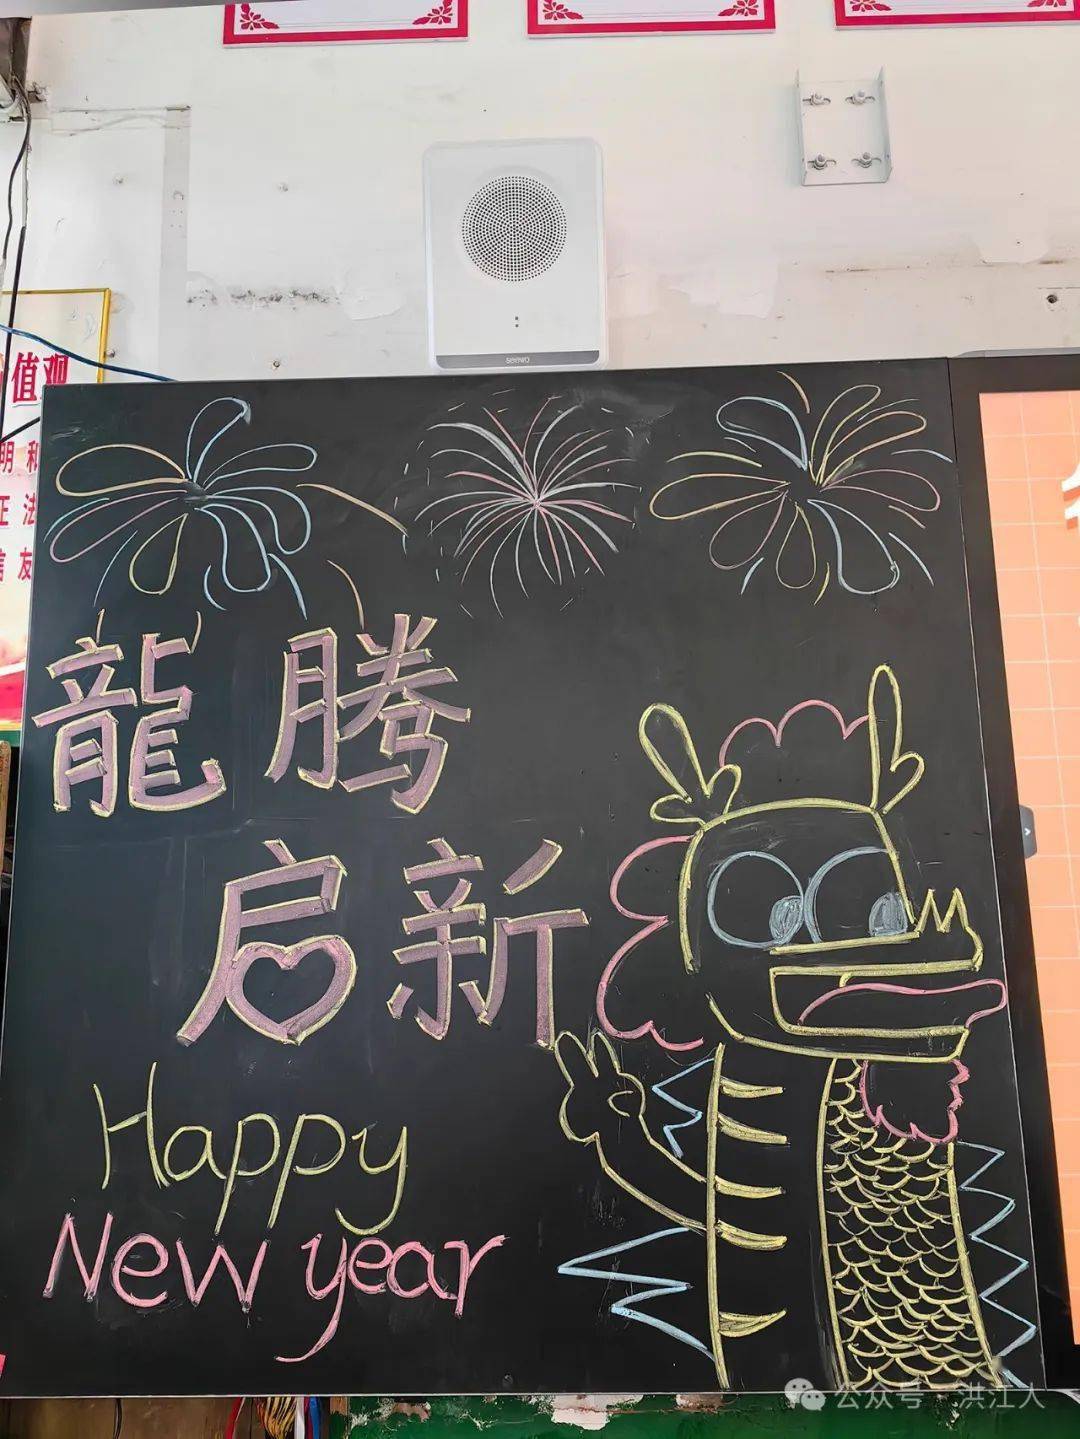 seewo
值观
明 和
正 法
信 友
龍 腾
启 新
Happy
New year
公众号 · 洪江人